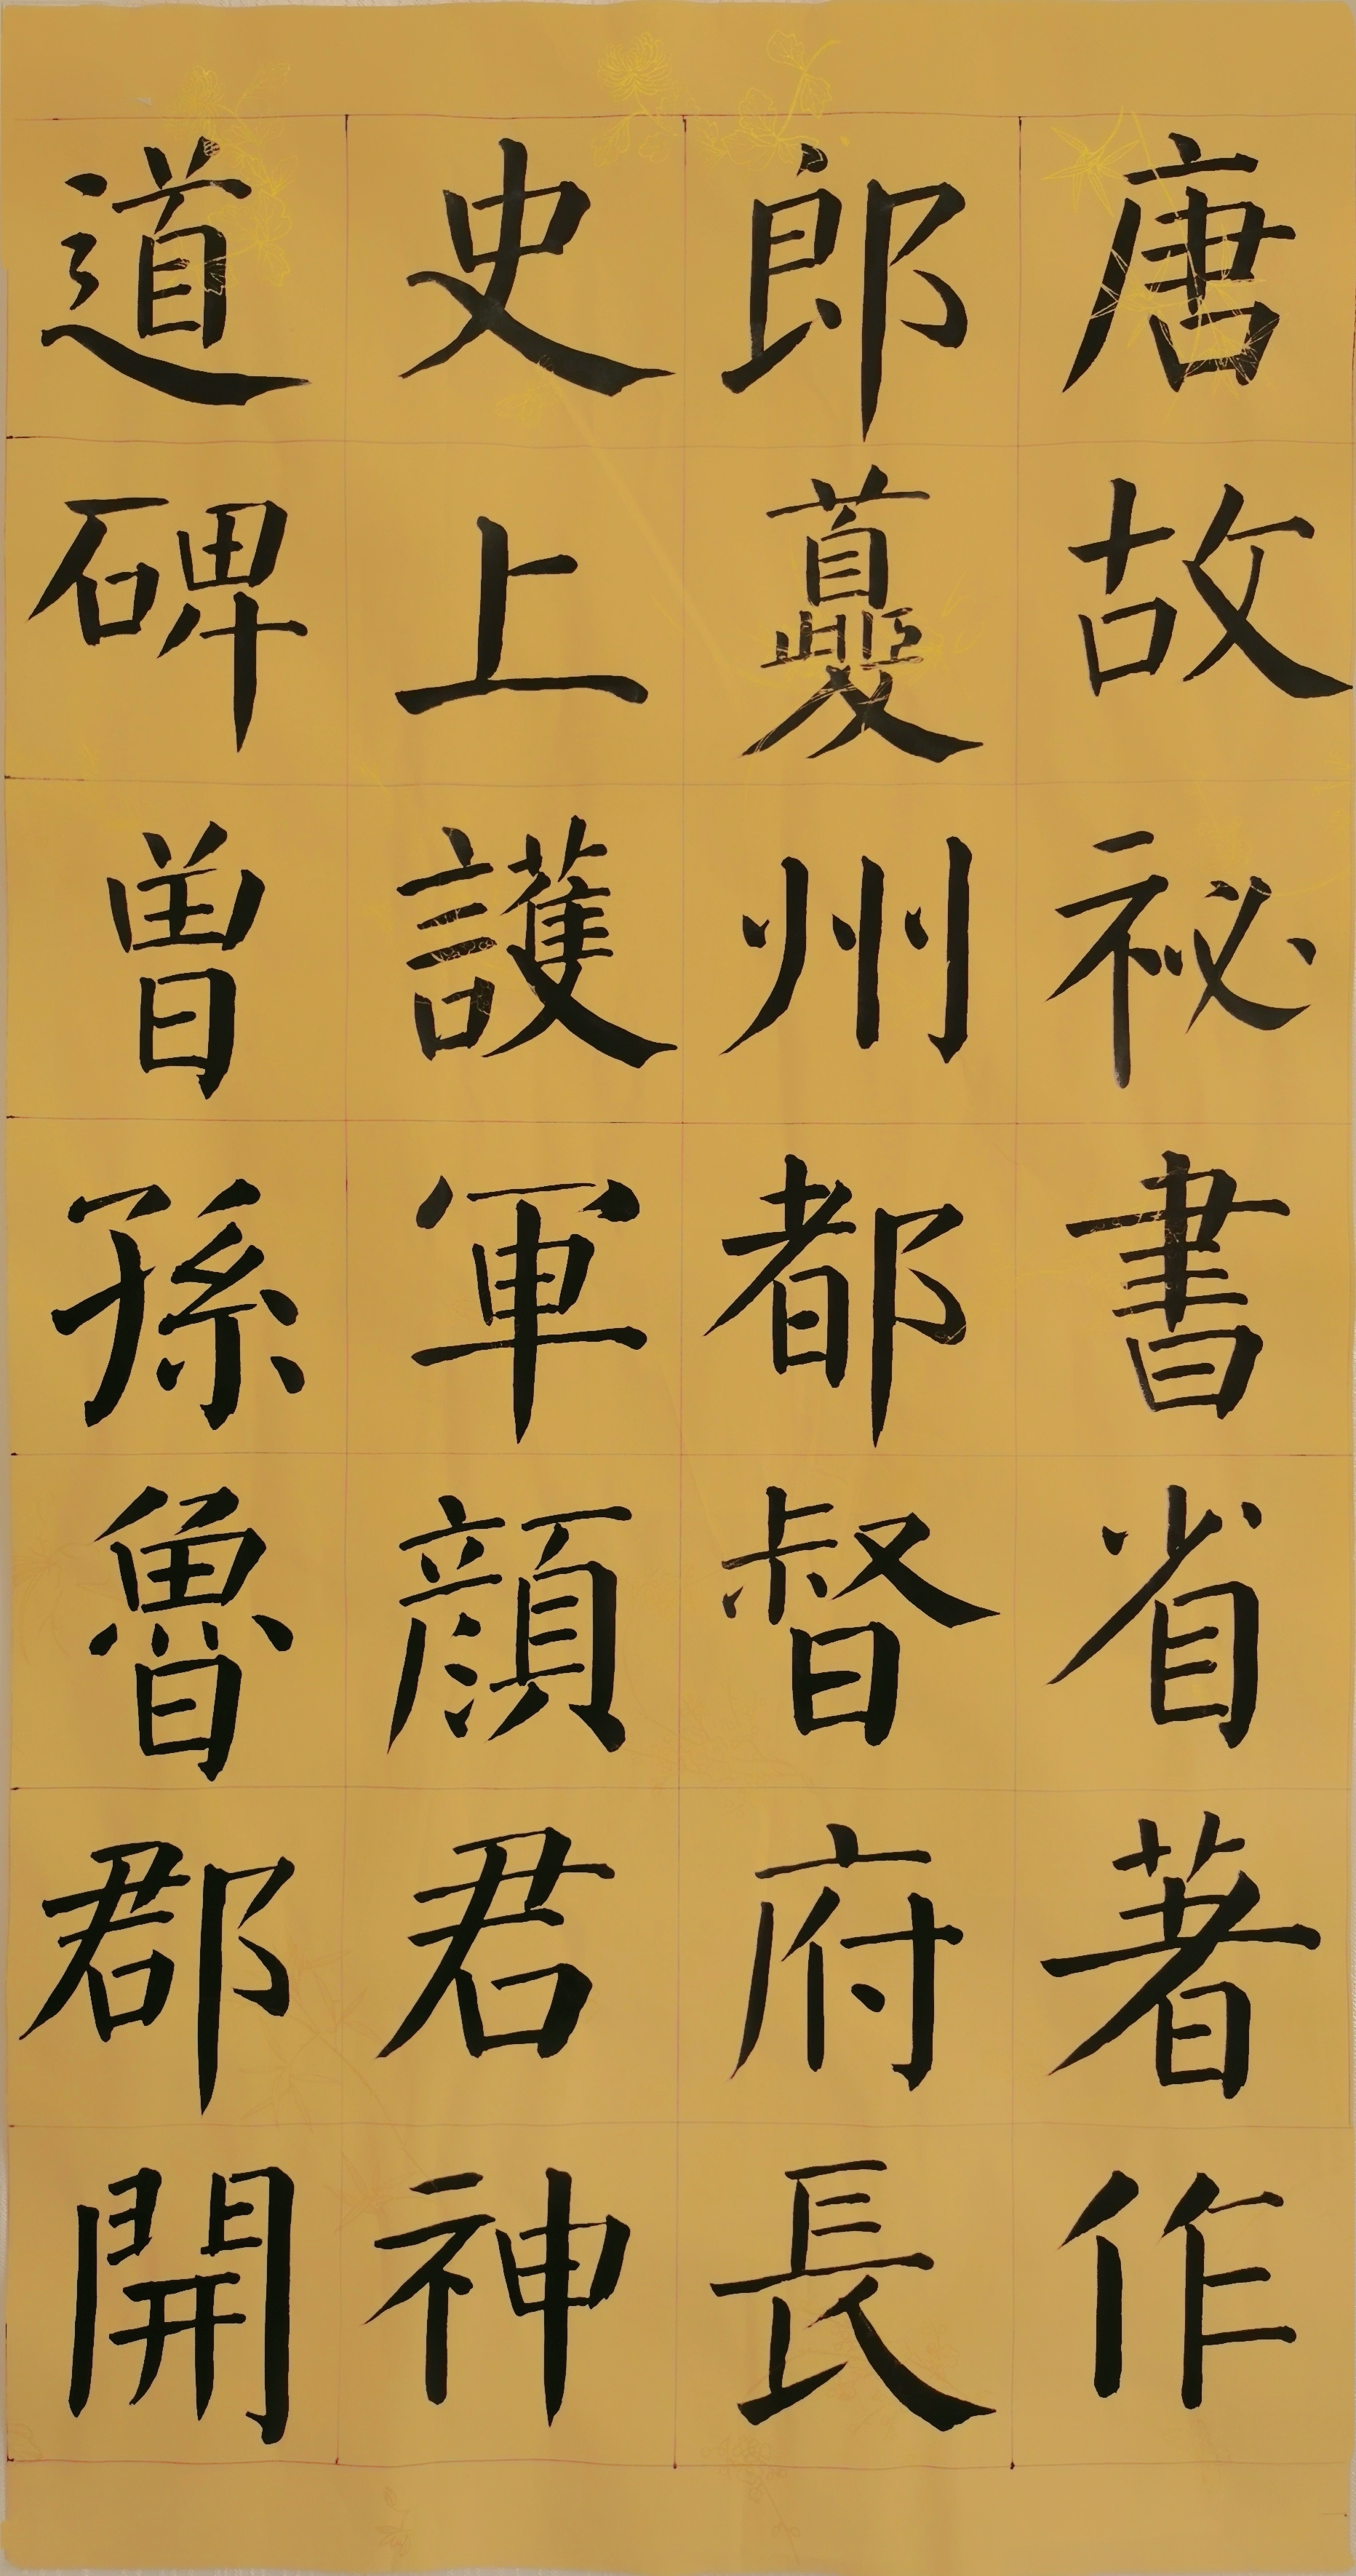 唐故祕書省著作
郎蘷州都督府長
史上護軍顏君神
道碑曾孫魯郡開